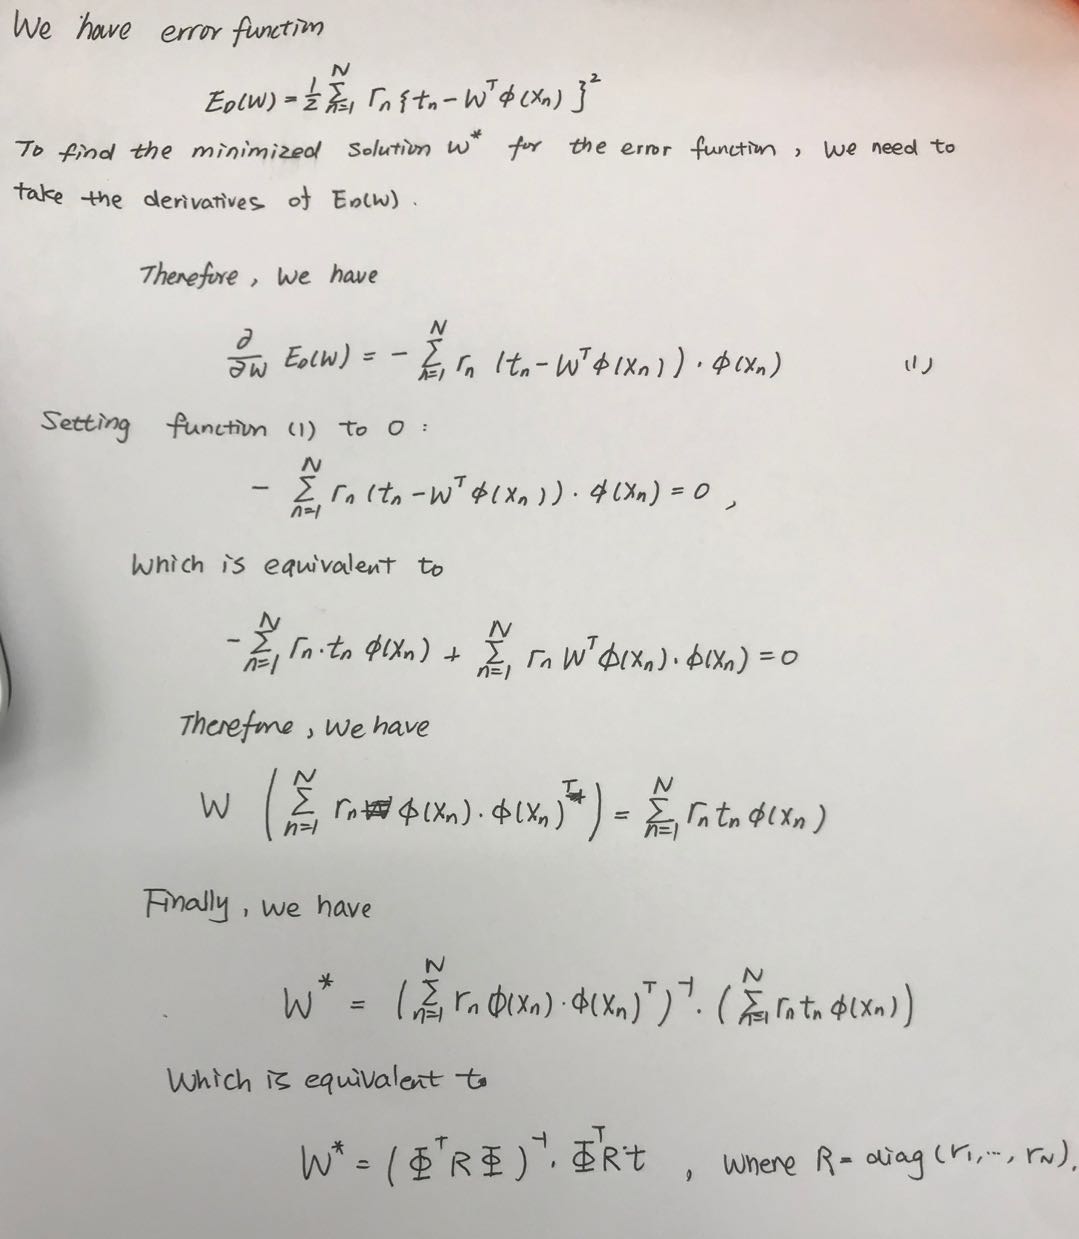 We have error function
E_D(W) = 1/2 Σ_{n=1}^{N} r_n {t_n - W^T ϕ(x_n) }^2
To find the minimized solution W* for the error function , we need to
take the derivatives of E_D(W) .
Therefore , we have
∂/∂W E_D(W) = - Σ_{n=1}^{N} r_n (t_n - W^T ϕ(x_n)) · ϕ(x_n) (1)
Setting function (1) to 0 :
- Σ_{n=1}^{N} r_n (t_n - W^T ϕ(x_n)) · ϕ(x_n) = 0 ,
Which is equivalent to
- Σ_{n=1}^{N} r_n · t_n ϕ(x_n) + Σ_{n=1}^{N} r_n W^T ϕ(x_n) · ϕ(x_n) = 0
Therefore , we have
W ( Σ_{n=1}^{N} r_n ϕ(x_n) · ϕ(x_n)^T ) = Σ_{n=1}^{N} r_n t_n ϕ(x_n)
Finally , we have
W* = ( Σ_{n=1}^{N} r_n ϕ(x_n) · ϕ(x_n)^T )^{-1} · ( Σ_{n=1}^{N} r_n t_n ϕ(x_n) )
Which is equivalent to
W* = ( Φ^T R Φ )^{-1} · Φ^T R t , where R = diag (r_1, ..., r_N) .